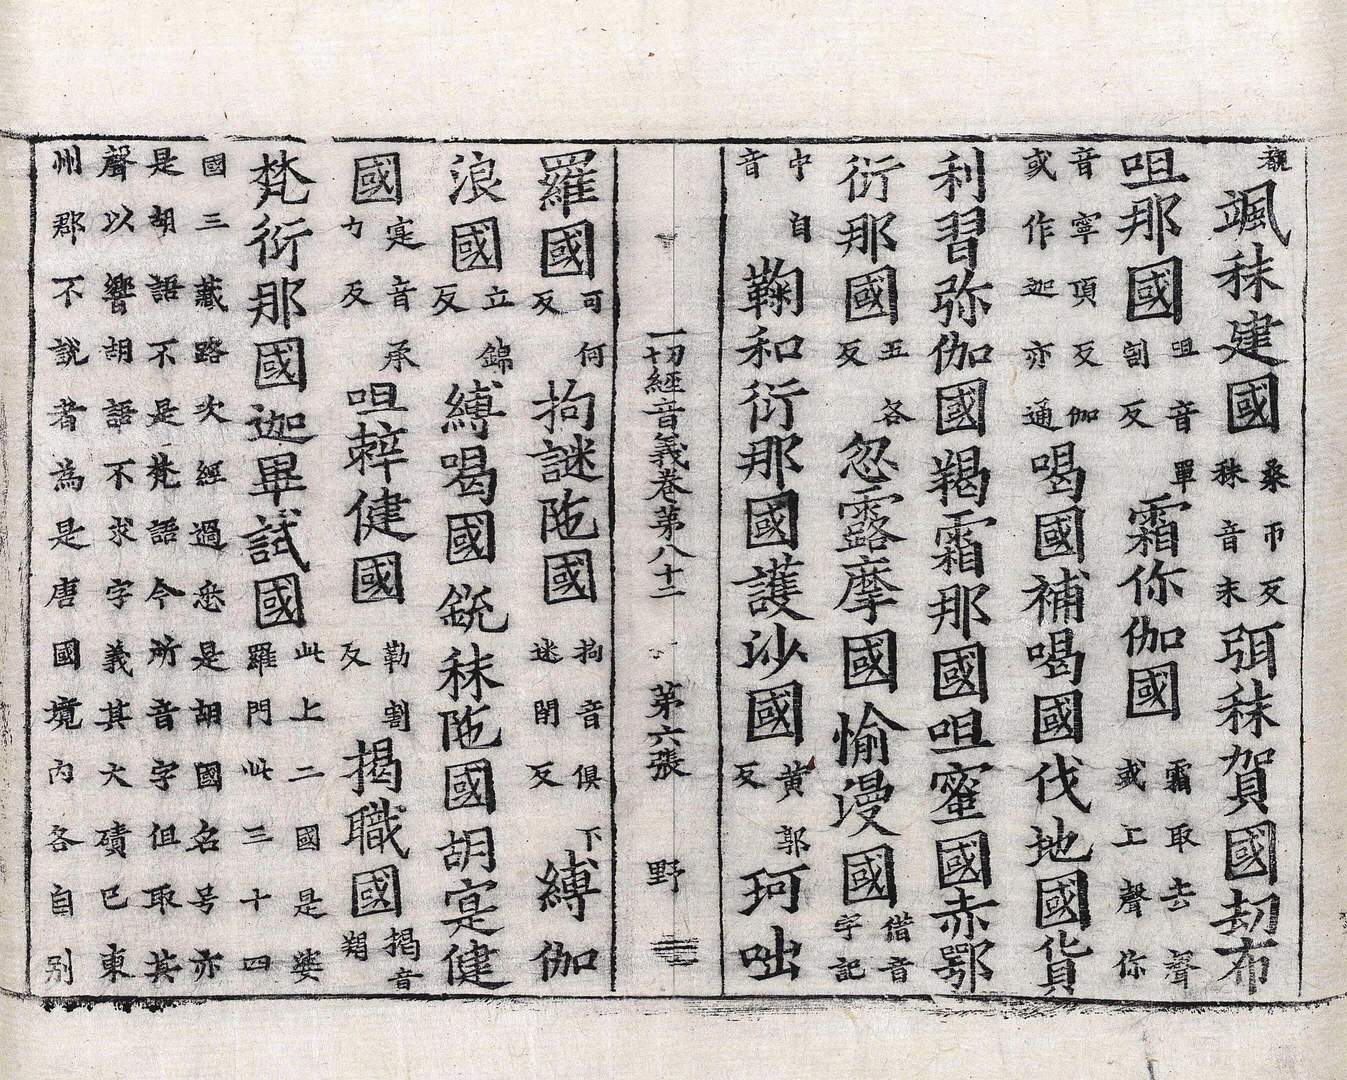 覩
颯秣建國桑帀反秣音末弭秣賀國劫布
呾那國呾音單割反霜你伽國霜取去聲或上聲你
音寧頂反伽或作迦亦通喝國補喝國伐地國貨
利習弥伽國羯霜那國呾蜜國赤鄂
衍那國五各反忽露摩國愉漫國借音字記
中自音鞠和衍那國護沙國黄郭反珂咄
一切經音義卷第八十二 第六張 野
羅國可何反拘謎陁國拘音俱下迷閇反縛伽
浪國立錦反縛喝國銳秣陁國胡寔健
國寔音承力反呾剌健國勒割反揭職國揭音朔
梵衍那國迦畢試國此上二國是婆羅門此三十四
國三藏路次經過悉是胡國名号亦
是胡語不是梵語今所音字伹取其
聲以響胡語不求字義其大磧已東
州郡不說者為是唐國境内各自別